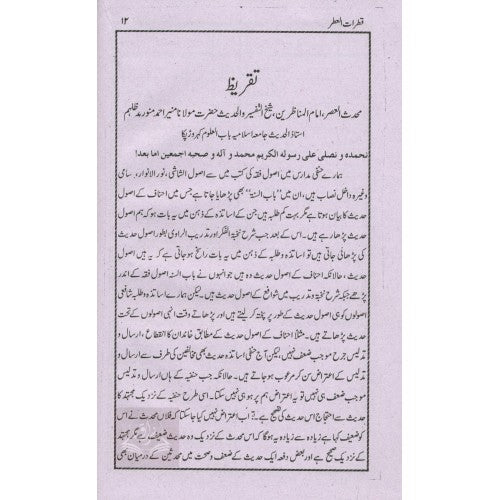 قطرات العطر
۱۲
تقریظ
محدث العصر، امام المناظرین، شیخ التفسیر والحدیث حضرت مولانا منیر احمد منور مدظلہم
استاذ الحدیث جامعہ اسلامیہ باب العلوم کہروڑپکا
نحمده و نصلی علی رسوله الکریم محمد و آله و صحبه اجمعین اما بعد!
ہمارے حنفی مدارس میں اصول فقہ کی کتب میں سے اصول الشاشی، نور الانوار، حسامی
وغیرہ داخل نصاب ہیں، ان میں "باب السنۃ" بھی پڑھایا جاتا ہے جس میں احناف کے اصول
حدیث کا بیان ہوتا ہے مگر بہت کم طلبہ ہیں جن کے اساتذہ کے ذہن میں یہ بات ہو کہ ہم اصول
حدیث پڑھا رہے ہیں۔ اس کے بعد جب شرح نخبۃ الفکر اور تدریب الراوی بطور اصول حدیث
کی پڑھائی جاتی ہیں تو اساتذہ و طلبہ کے ذہن میں یہ بات راسخ ہو جاتی ہے کہ یہ ہیں اصول
حدیث، حالانکہ احناف کے اصول حدیث وہ ہیں جو انہوں نے باب السنہ اصول فقہ کے اندر
پڑھے جبکہ شرح نخبۃ و تدریب میں شوافع کے اصول حدیث ہیں۔ لیکن ہمارے اساتذہ و طلبہ شافعی
اصولوں کو ہی اصول حدیث کے طور پر پختہ کر لیتے ہیں اور پڑھاتے وقت انہی اصولوں کے تحت
حدیث پڑھاتے ہیں۔ مثلاً احناف کے اصول حدیث کے مطابق خاندان کا انقطاع، ارسال و
تدلیس جرح موجب ضعف نہیں، لیکن آج حنفی اساتذہ حدیث بھی مخالفین کی طرف سے ارسال و
تدلیس کے اعتراض سن کر مرعوب ہو جاتے ہیں۔ حالانکہ جب حنفیہ کے ہاں ارسال و تدلیس
موجب ضعف ہی نہیں تو یہ اعتراض ہم پر ہو ہی نہیں سکتا۔ اسی طرح حنفیہ کے نزدیک مجتہد کا
حدیث سے احتجاج اس حدیث کی تصحیح ہے۔ اب اعتراض نہیں کیا جا سکتا کہ فلاں محدث نے اس
کو ضعیف کہا ہے زیادہ سے زیادہ یہ ہوگا کہ اس محدث کے نزدیک وہ حدیث ضعیف ہے مگر مجتہد
کے نزدیک صحیح ہے اور بعض دفعہ ایک حدیث کے ضعف و صحت میں محدثین کے درمیان بھی